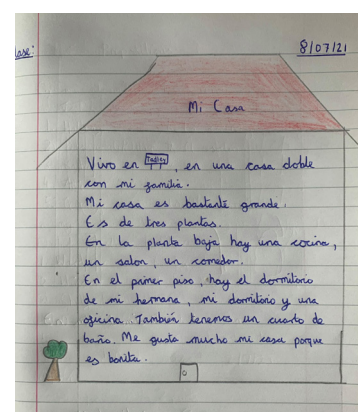 lase:
8/07/21
Mi Casa
Vivo en Tadley, en una casa doble
con mi familia.
Mi casa es bastante grande.
Es de tres plantas.
En la planta baja hay una cocina,
un salon, un comedor.
En el primer piso, hay el dormitorio
de mi hermana, mi dormitorio y una
oficina. También tenemos un cuarto de
baño. Me gusta mucho mi casa porque
es bonita.